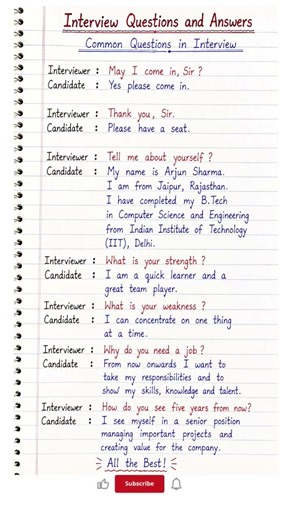 Interview Questions and Answers
Common Questions in Interview
Interviewer : May I come in, Sir ?
Candidate : Yes please come in.
Interviewer : Thank you, Sir.
Candidate : Please have a seat.
Interviewer : Tell me about yourself ?
Candidate : My name is Arjun Sharma.
I am from Jaipur, Rajasthan.
I have completed my B.Tech
in Computer Science and Engineering
from Indian Institute of Technology
(IIT), Delhi.
Interviewer : What is your strength ?
Candidate : I am a quick learner and a
great team player.
Interviewer : What is your weakness ?
Candidate : I can concentrate on one thing
at a time.
Interviewer : Why do you need a job ?
Candidate : From now onwards I want to
take my responsibilities and to
show my skills, knowledge and talent.
Interviewer : How do you see five years from now?
Candidate : I see myself in a senior position
managing important projects and
creating value for the company.
All the Best!
Subscribe